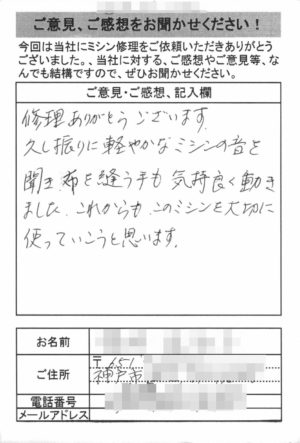 ご意見、ご感想をお聞かせください!
今回は当社にミシン修理をご依頼いただきありがとう
ございました。、当社に対する、ご感想やご意見等、な
んでも結構ですので、ぜひお聞かせください。
ご意見・ご感想、記入欄
修理ありがとうございます
久し振りに軽やかなミシンの音を
聞き 布を縫う手も 気持良く動き
ました、これからも、このミシンを大切に
使っていこうと思います。
お名前
ご住所
〒651
神戸市
電話番号
メールアドレス